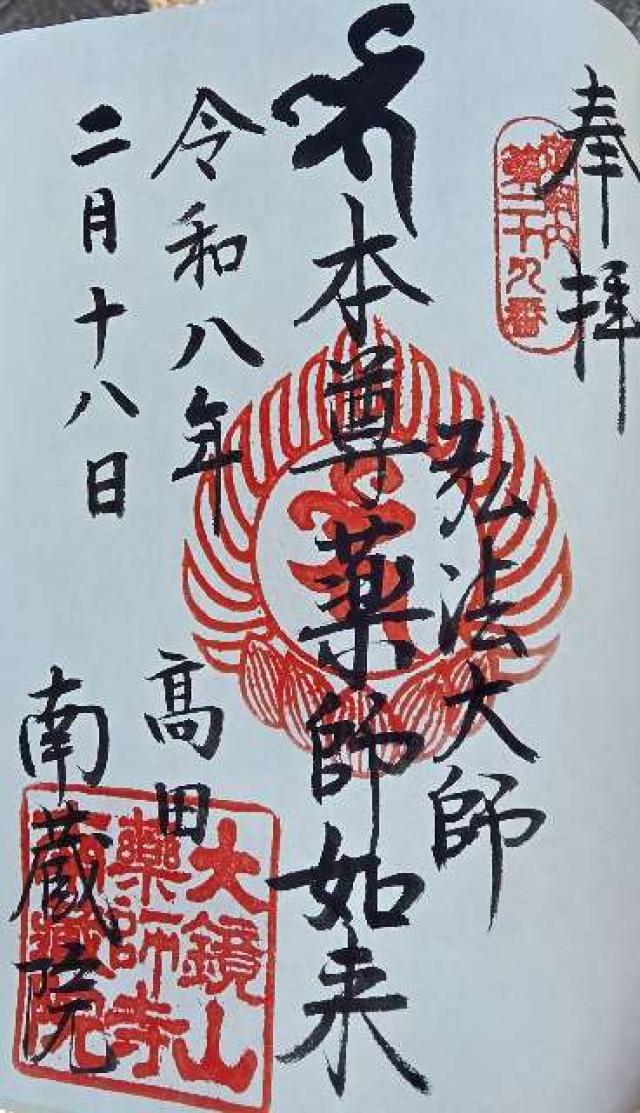 奉拝
第二十九番
弘法大師
本尊薬師如来
令和八年
二月十八日
高田
南蔵院
大鏡山
薬師寺
南蔵院